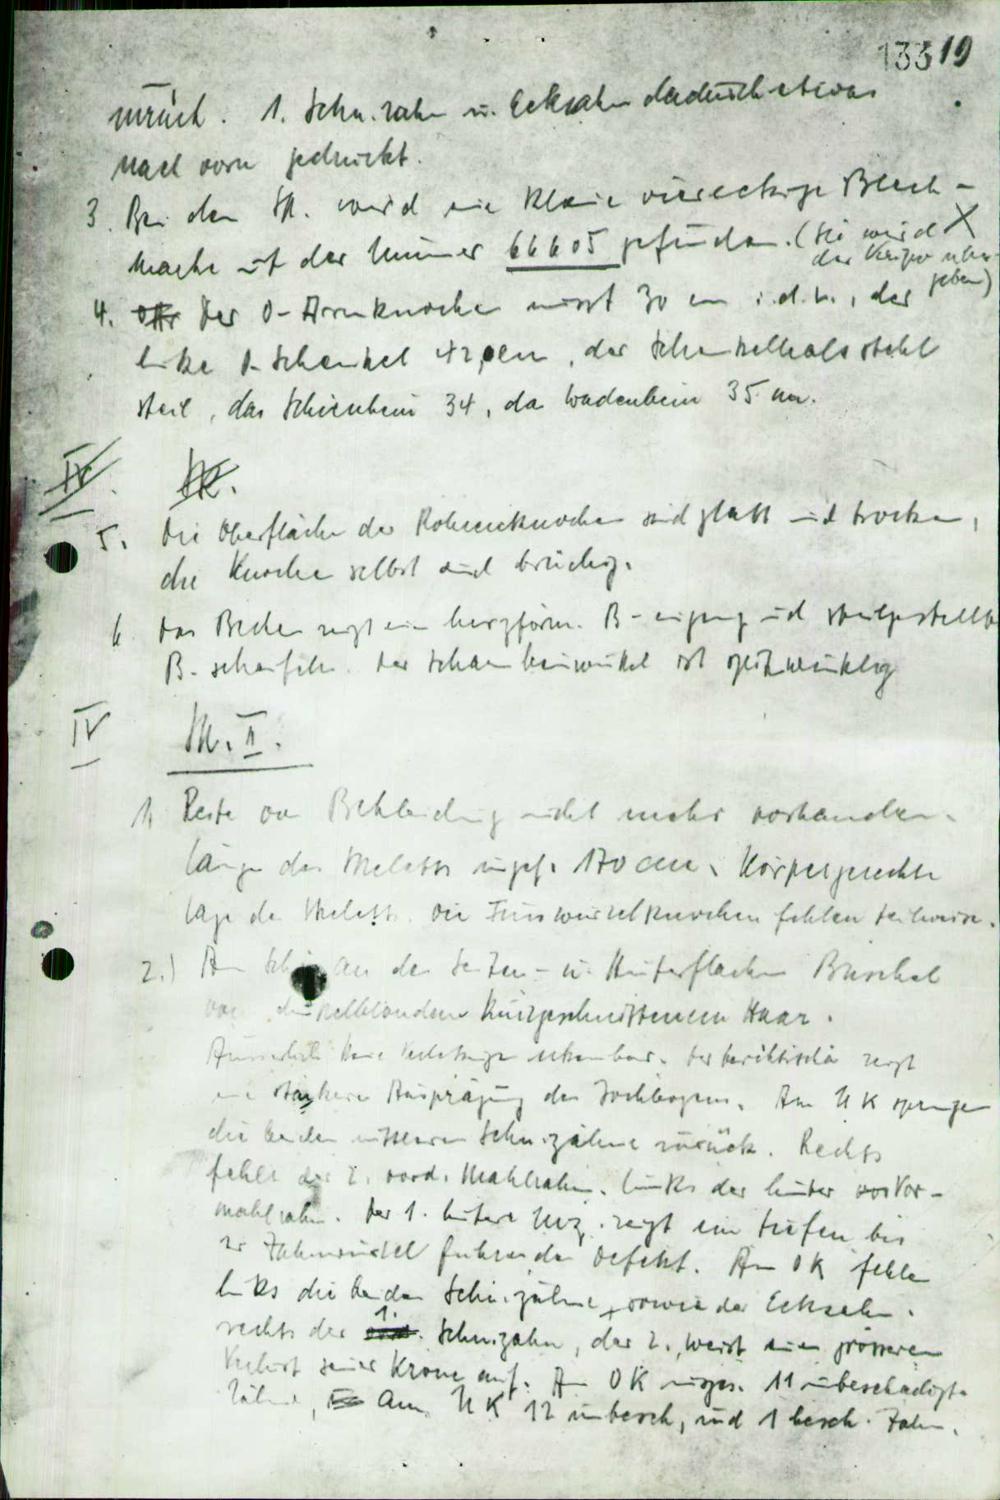 133 19
zurück. 1. Schn.zahn u. Eckzahn dadurch etwas
nach vorn gedrückt.
3. Bei dem Sk. wird eine kleine viereckige Blech-
marke mit der Nummer 66605 gefunden. (Sie wird X
der Kripo über-
geben)
4. Der O-Armknochen misst 30 cm i.d.L., der
linke O-Schenkel 42 cm, der Schenkelhals steht
steil, das Schienbein 34, das Wadenbein 35 cm.
IV. Sk.
5. Die Oberfläche der Röhrenknochen sind glatt und trocken,
die Knochen selbst sind brüchig.
6. Das Becken zeigt ein herzförm. B-eingang und steilgestellte
B-schaufeln. Der Schambeinwinkel ist spitzwinklig
IV Sk. II.
1. Reste von Bekleidung nicht mehr vorhanden.
Länge des Skeletts ungef. 170 cm. Körpergerechte
Lage des Skeletts. Die Fusswurzelknochen fehlen teilweise.
2.) Am Sch an den Seiten- u. Hinterflächen Büschel
von dunkelblondem kurzgeschnittenem Haar.
Äusserlich keine Verletzungen erkennbar. Der zeigt
eine stärkere Ausprägung des Jochbogens. Am UK springen
die beiden mittleren Schn.zähne zurück. Rechts
fehlt der 2. vord. Mahlzahn, links der hinter Vor-
mahlzahn. Der 1. hintere zeigt ein tiefen bis
zur Zahnwurzel führenden Defekt. Am OK fehlen
links die beiden Schn.zähne, sowie der Eckzahn.
rechts der 1. Schn.zahn, der 2. weist einen grösseren
Verlust seiner Krone auf. Am OK insges. 11 unbeschädigte
Zähne, Am UK 12 unbesch, und 1 besch. Zahn.